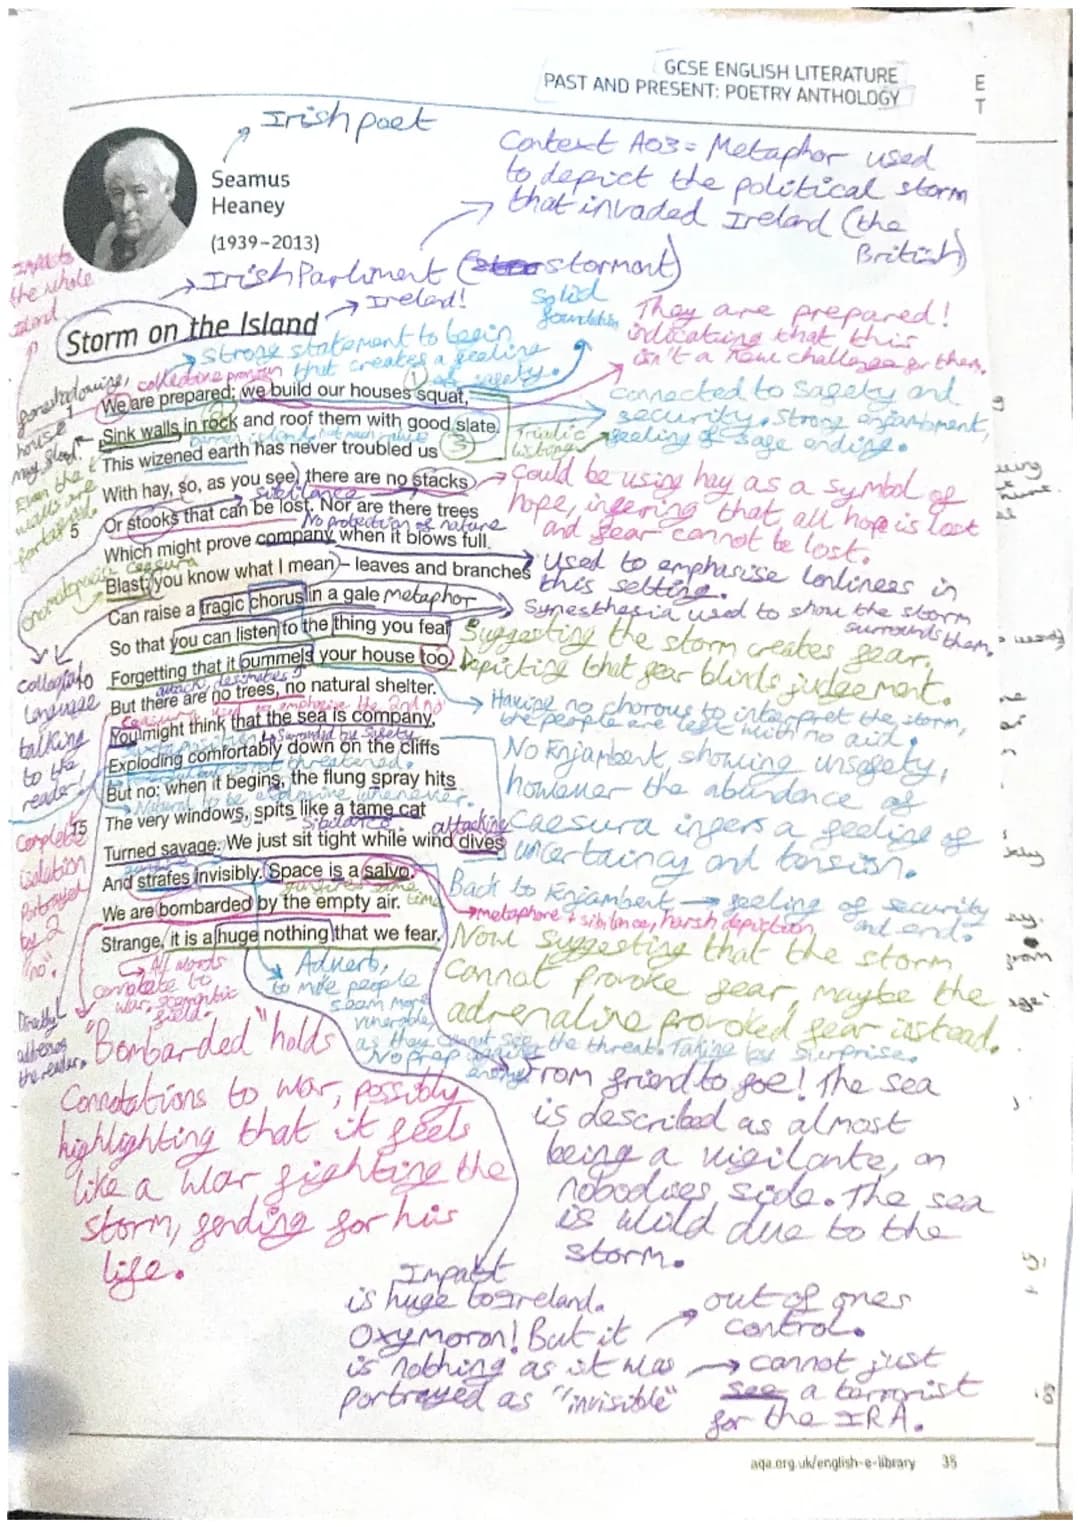 GCSE ENGLISH LITERATURE
PAST AND PRESENT: POETRY ANTHOLOGY
E
T
Irish poet
Seamus
Heaney
(1939–2013)
Context AO3 = Metaphor used
to depict the political storm
that invaded Ireland (the
British)
Irish Parliment (stormont)
Ireland!
Impacts
the whole
Island
Storm on the Island
Solid
foundation
They are prepared!
indicating that this
isn't a new challenge for them.
Strong statement to begin
that creates a feeling
of safety.
collective pronoun
foreshadowing,
house
may flood.
connected to safety and
security. Strong enjambment,
feeling of safe ending.
We are prepared: we build our houses squat,
Sink walls in rock and roof them with good slate.
Triplic
listing
This wizened earth has never troubled us
With hay, so, as you see, there are no stacks
Even the
walls are
sibilance
5 Or stooks that can be lost. Nor are there trees
No protection of nature
Which might prove company when it blows full
Could be using hay as a symbol of
hope, infering that all hope is lost
and fear cannot be lost.
onomatopoeia caesura
Blast: you know what I mean – leaves and branches
Used to emphasise lonliness in
this setting.
Can raise a tragic chorus in a gale
metaphor
Synesthesia used to show the storm
surrounds them.
So that you can listen to the thing you fear
Forgetting that it pummels your house too.
Suggesting the storm creates fear.
Depicting that fear blinds judgement.
But there are no trees, no natural shelter.
Having no chorous to interpret the storm,
the people are left with no aid.
You might think that the sea is company,
Surrounded by safety
Exploding comfortably down on the cliffs
But no: when it begins, the flung spray hits
No Enjambent, showing unsafety,
however the abundance of
Caesura infers a feeling of
uncertainty and tension.
The very windows, spits like a tame cat
Sibilance
attacking
Turned savage. We just sit tight while wind dives
And strafes invisibly. Space is a salvo.
We are bombarded by the empty air.
Strange, it is a huge nothing that we fear.
language
talking
to the
reader!
15
Complete
isolation
Portrayed
by 2
"no".
Back to Enjambent → feeling of security
and end.
metaphore + sibilance, harsh depiction
Now suggesting that the storm
cannot provoke fear, maybe the
adrenaline provoked fear instead.
All words
connotate to
war, semantic
field.
Directly
adresses
the reader.
Adverb,
to make people
seem more
vunerable,
as they cannot see the threat. Taking by surprise.
"Bombarded" holds
Connotations to war, possibly
highlighting that it feels
like a war fighting the
storm, fending for his
life.
From friend to foe! The sea
is described as almost
being a vigilante, on
nobodies side. The sea
is wild due to the
storm.
Impact
is huge to Ireland.
Oxymoron! But it
is nothing as it was
portrayed as "invisible"
out of ones
control.
cannot just
see a terrorist
for the IRA.
aqa.org.uk/english-e-library 35